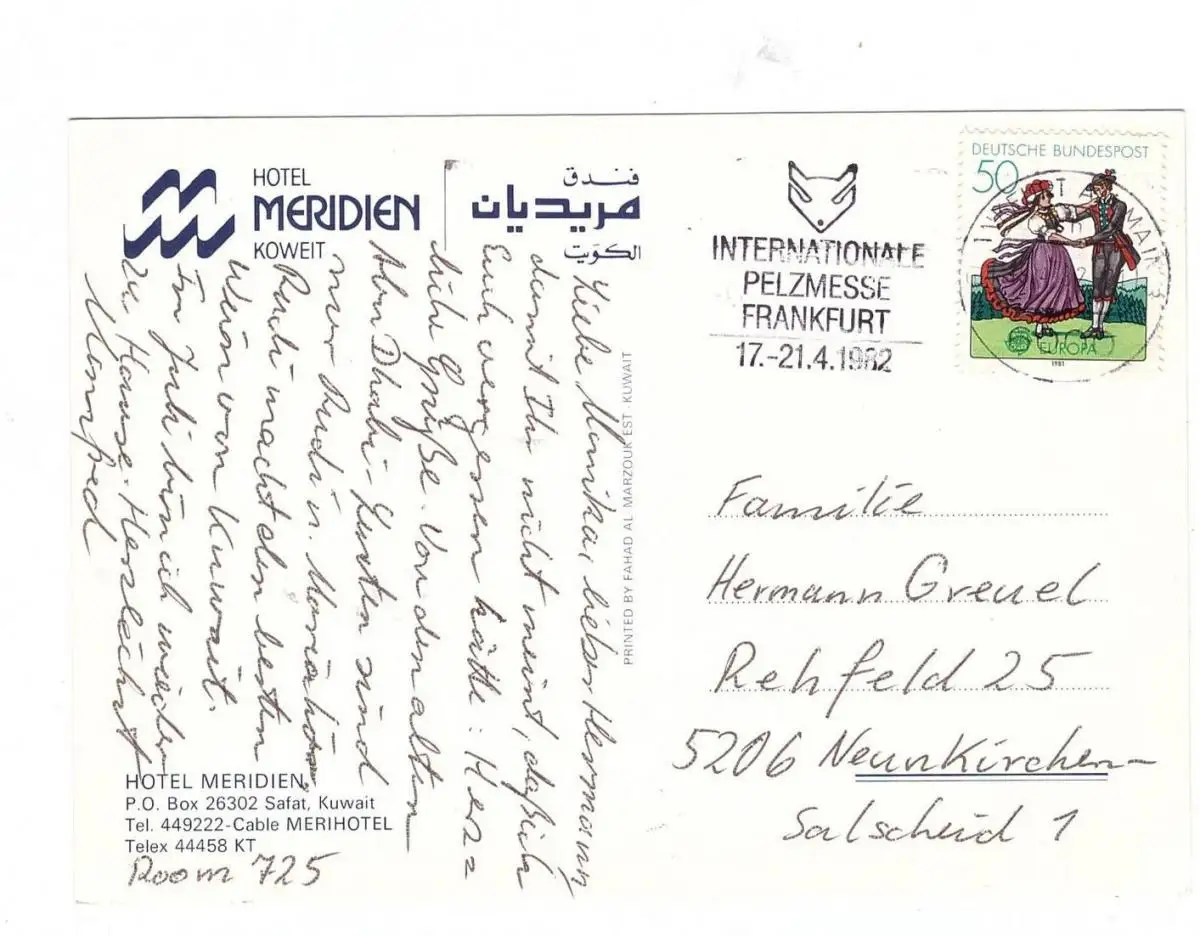 HOTEL
MERIDIEN
KOWEIT
فندق
مريديان
الكويت
Liebe Monika, lieber Hermann,
damit Ihr nicht meint, daß ich
Euch vergessen hätte: Herz=
liche Grüße. Von den alten
Abu Dhabi-Leuten sind
nur Rudi u.
Rudi macht den besten
Wein von Kuwait.
Im Juli bin ich wieder
zu Hause. Herzlichst
Manfred
HOTEL MERIDIEN,
P.O. Box 26302 Safat, Kuwait
Tel. 449222-Cable MERIHOTEL
Telex 44458 KT
Room 725
PRINTED BY FAHAD AL MARZOUK EST. KUWAIT
INTERNATIONALE
PELZMESSE
FRANKFURT
17.-21.4.1982
DEUTSCHE BUNDESPOST
50
EUROPA
1981
Familie
Hermann Greuel
Rehfeld 25
5206 Neunkirchen-
Salscheid 1